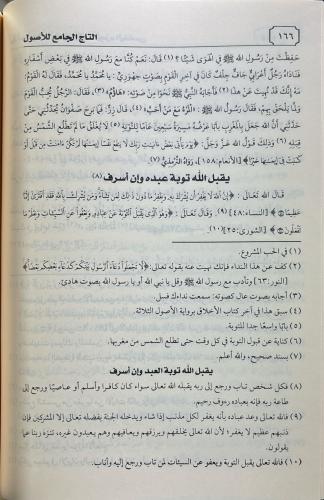 ١٦٦ التاج الجامع للأصول
حَفِظْتَ مِنْ رَسُولِ اللهِ ﷺ فِي الْهَوَى شَيْئًا؟ (١) قَالَ: نَعَمْ كُنَّا مَعَ رَسُولِ اللهِ ﷺ فِي بَعْضِ أَسْفَارِهِ
فَنَادَاهُ رَجُلٌ أَعْرَابِيٌّ جِلْفٌ جَافٍ كَانَ فِي آخِرِ الْقَوْمِ بِصَوْتٍ جَهْوَرِيٍّ: يَا مُحَمَّدُ يَا مُحَمَّدُ، فَقَالَ لَهُ الْقَوْمُ:
مَهْ إِنَّكَ قَدْ نُهِيتَ عَنْ هَذَا (٢) فَأَجَابَهُ النَّبِيُّ ﷺ نَحْوًا مِنْ صَوْتِهِ: «هَاؤُمُ» (٣)، فَقَالَ: الرَّجُلُ يُحِبُّ الْقَوْمَ
وَلَمَّا يَلْحَقْ بِهِمْ، فَقَالَ رَسُولُ اللهِ ﷺ: «الْمَرْءُ مَعَ مَنْ أَحَبَّ» (٤)، قَالَ زِرٌّ: فَمَا بَرِحَ صَفْوَانُ يُحَدِّثُنِي حَتَّى
حَدَّثَنِي أَنَّ اللهَ جَعَلَ بِالْمَغْرِبِ بَابًا عَرْضُهُ مَسِيرَةُ سَبْعِينَ عَامًا لِلتَّوْبَةِ (٥) لَا يُغْلَقُ مَا لَمْ تَطْلُعِ الشَّمْسُ مِنْ
قِبَلِهِ (٦) وَذَلِكَ قَوْلُ اللهِ عَزَّ وَجَلَّ: ﴿يَوْمَ يَأْتِي بَعْضُ ءَايَاتِ رَبِّكَ لَا يَنفَعُ نَفْسًا إِيمَانُهَا لَمْ تَكُنْ ءَامَنَتْ مِن قَبْلُ أَوْ
كَسَبَتْ فِي إِيمَانِهَا خَيْرًا﴾ [الأنعام: ١٥٨]. رَوَاهُ التِّرْمِذِيُّ (٧).
يقبل الله توبة عبده وإن أسرف
(٨)
قَالَ اللهُ تَعَالَى: ﴿إِنَّ اللَّهَ لَا يَغْفِرُ أَن يُشْرَكَ بِهِ وَيَغْفِرُ مَا دُونَ ذَلِكَ لِمَن يَشَاءُ وَمَن يُشْرِكْ بِاللَّهِ فَقَدِ افْتَرَى إِثْمًا
عَظِيمًا﴾ [النساء: ٤٨] (٩) وَقَالَ تَعَالَى: ﴿وَهُوَ الَّذِي يَقْبَلُ التَّوْبَةَ عَنْ عِبَادِهِ وَيَعْفُو عَنِ السَّيِّئَاتِ وَيَعْلَمُ مَا
تَفْعَلُونَ﴾ [الشورى: ٢٥] (١٠).
(١) في الحب المشروع.
(٢) كف عن هذا النداء فإنك نهيت عنه بقوله تعالى: ﴿لَا تَجْعَلُوا دُعَاءَ الرَّسُولِ بَيْنَكُمْ كَدُعَاءِ بَعْضِكُم بَعْضًا﴾
[النور: ٦٣] وتأدب مع رسول الله ﷺ وقل يا نبي الله أو يا رسول الله بصوت هادئ.
(٣) أجابه بصوت عال كصوته: سمعت نداءك فسل.
(٤) سبق هذا في آخر كتاب الأخلاق برواية الأصول الثلاثة.
(٥) بابًا واسعًا جدا للتوبة.
(٦) كناية عن قبول التوبة في كل وقت حتى تطلع الشمس من مغربها.
(٧) بسند صحيح، والله أعلم.
يقبل الله توبة العبد وإن أسرف
(٨) فكل شخص تاب ورجع إلى ربه يقبله الله تعالى سواء كان كافرا وأسلم أو عاصيًا ورجع إلى
طاعة ربه فإنه بعباده رءوف رحيم.
(٩) فالله تعالى وعد عباده بأنه يغفر لكل مذنب إذا شاء ويدخله الجنة بفضله تعالى إلا المشركين فإن
ذنبهم عظيم لا يغفر؛ لأن الله تعالى يخلقهم ويرزقهم ويعافيهم وهم يعبدون غيره، تنزه ربنا عما
يقولون.
(١٠) فالله تعالى يقبل التوبة ويعفو عن السيئات لمن تاب ورجع إليه وأناب.